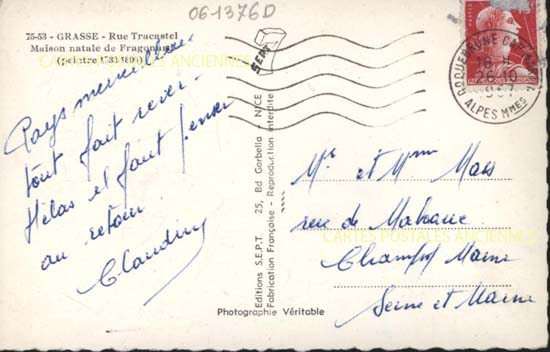 061376D
75-53 - GRASSE - Rue Tracastel
Maison natale de Fragonard
(peintre 1732-1806)
CARTES POSTALES ANCIENNES
Pays merveilleux
tout fait rêver
Hélas il faut penser
au retour.
Claudine
Editions S.E.P.T 25, Bd Gorbella - NICE
Fabrication Française - Reproduction interdite
SEPT
Photographie Véritable
ROQUEBRUNE CAP
18 H
1957
ALPES MMES
Mr et Mme Mass
rue de
CARTES POSTALES ANCIENNES
Champs Marne
Seine et Marne